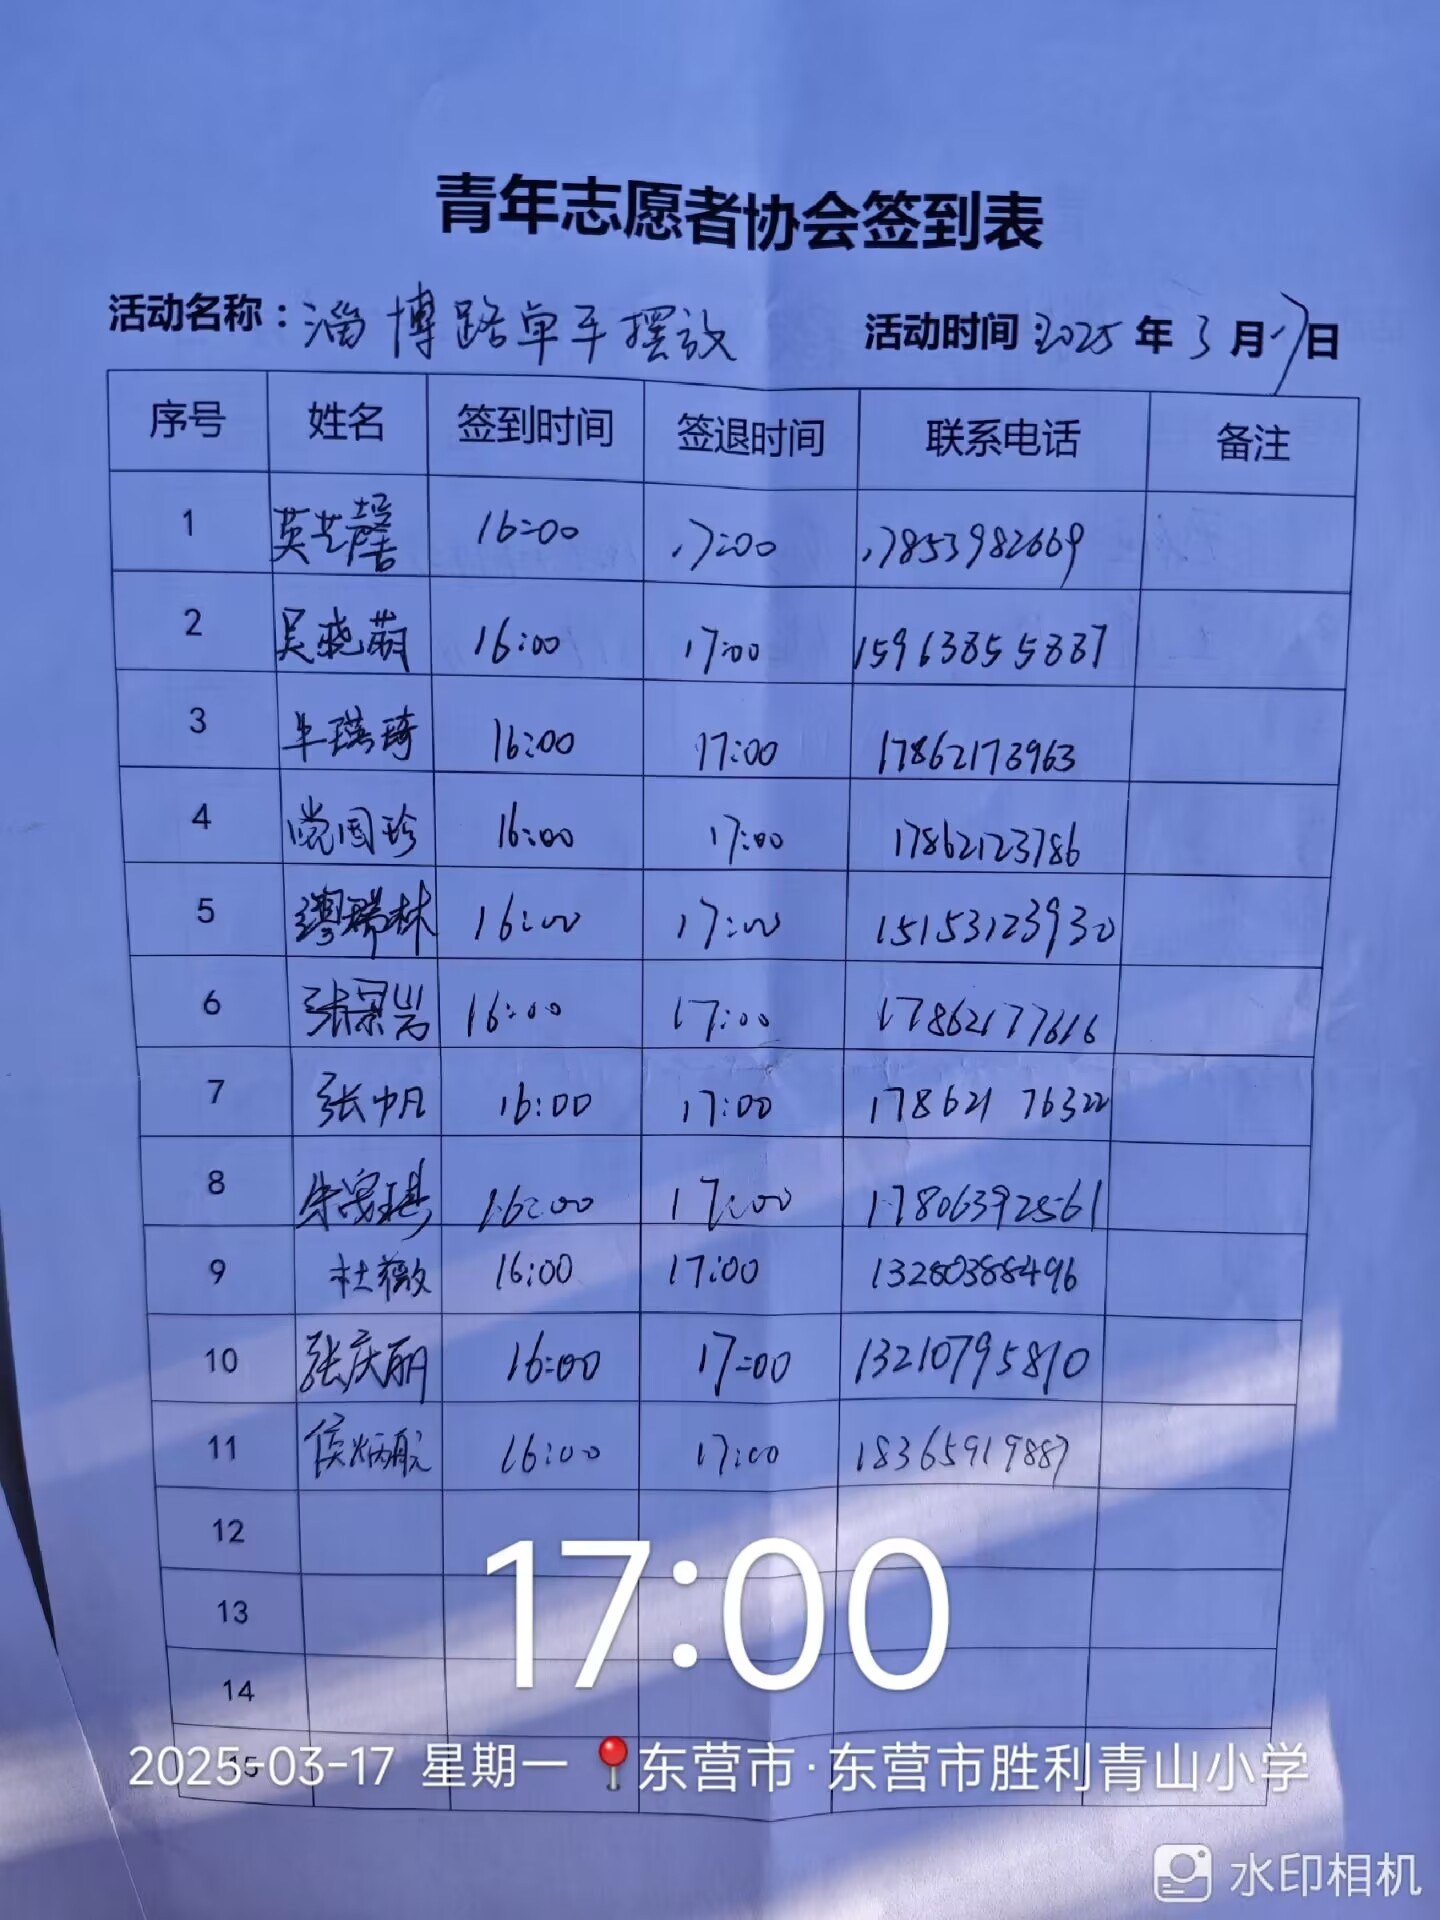 青年志愿者协会签到表
活动名称：淄博路单车摆放 活动时间：2025年3月17日
序号 姓名 签到时间 签退时间 联系电话 备注
1 英芝馨 16:00 17:00 17853982669
2 吴晓萌 16:00 17:00 15963855887
3 16:00 17:00 17862173963
4 党国珍 16:00 17:00 17862123786
5 缪瑞林 16:00 17:00 15153123930
6 张景岩 16:00 17:00 17862177616
7 张帆 16:00 17:00 17862176322
8 16:00 17:00 17806392561
9 杜薇 16:00 17:00 13280388496
10 张庆丽 16:00 17:00 13210795870
11 侯炳航 16:00 17:00 18365919887
12
13
14
15
17:00
2025-03-17 星期一 东营市·东营市胜利青山小学
水印相机